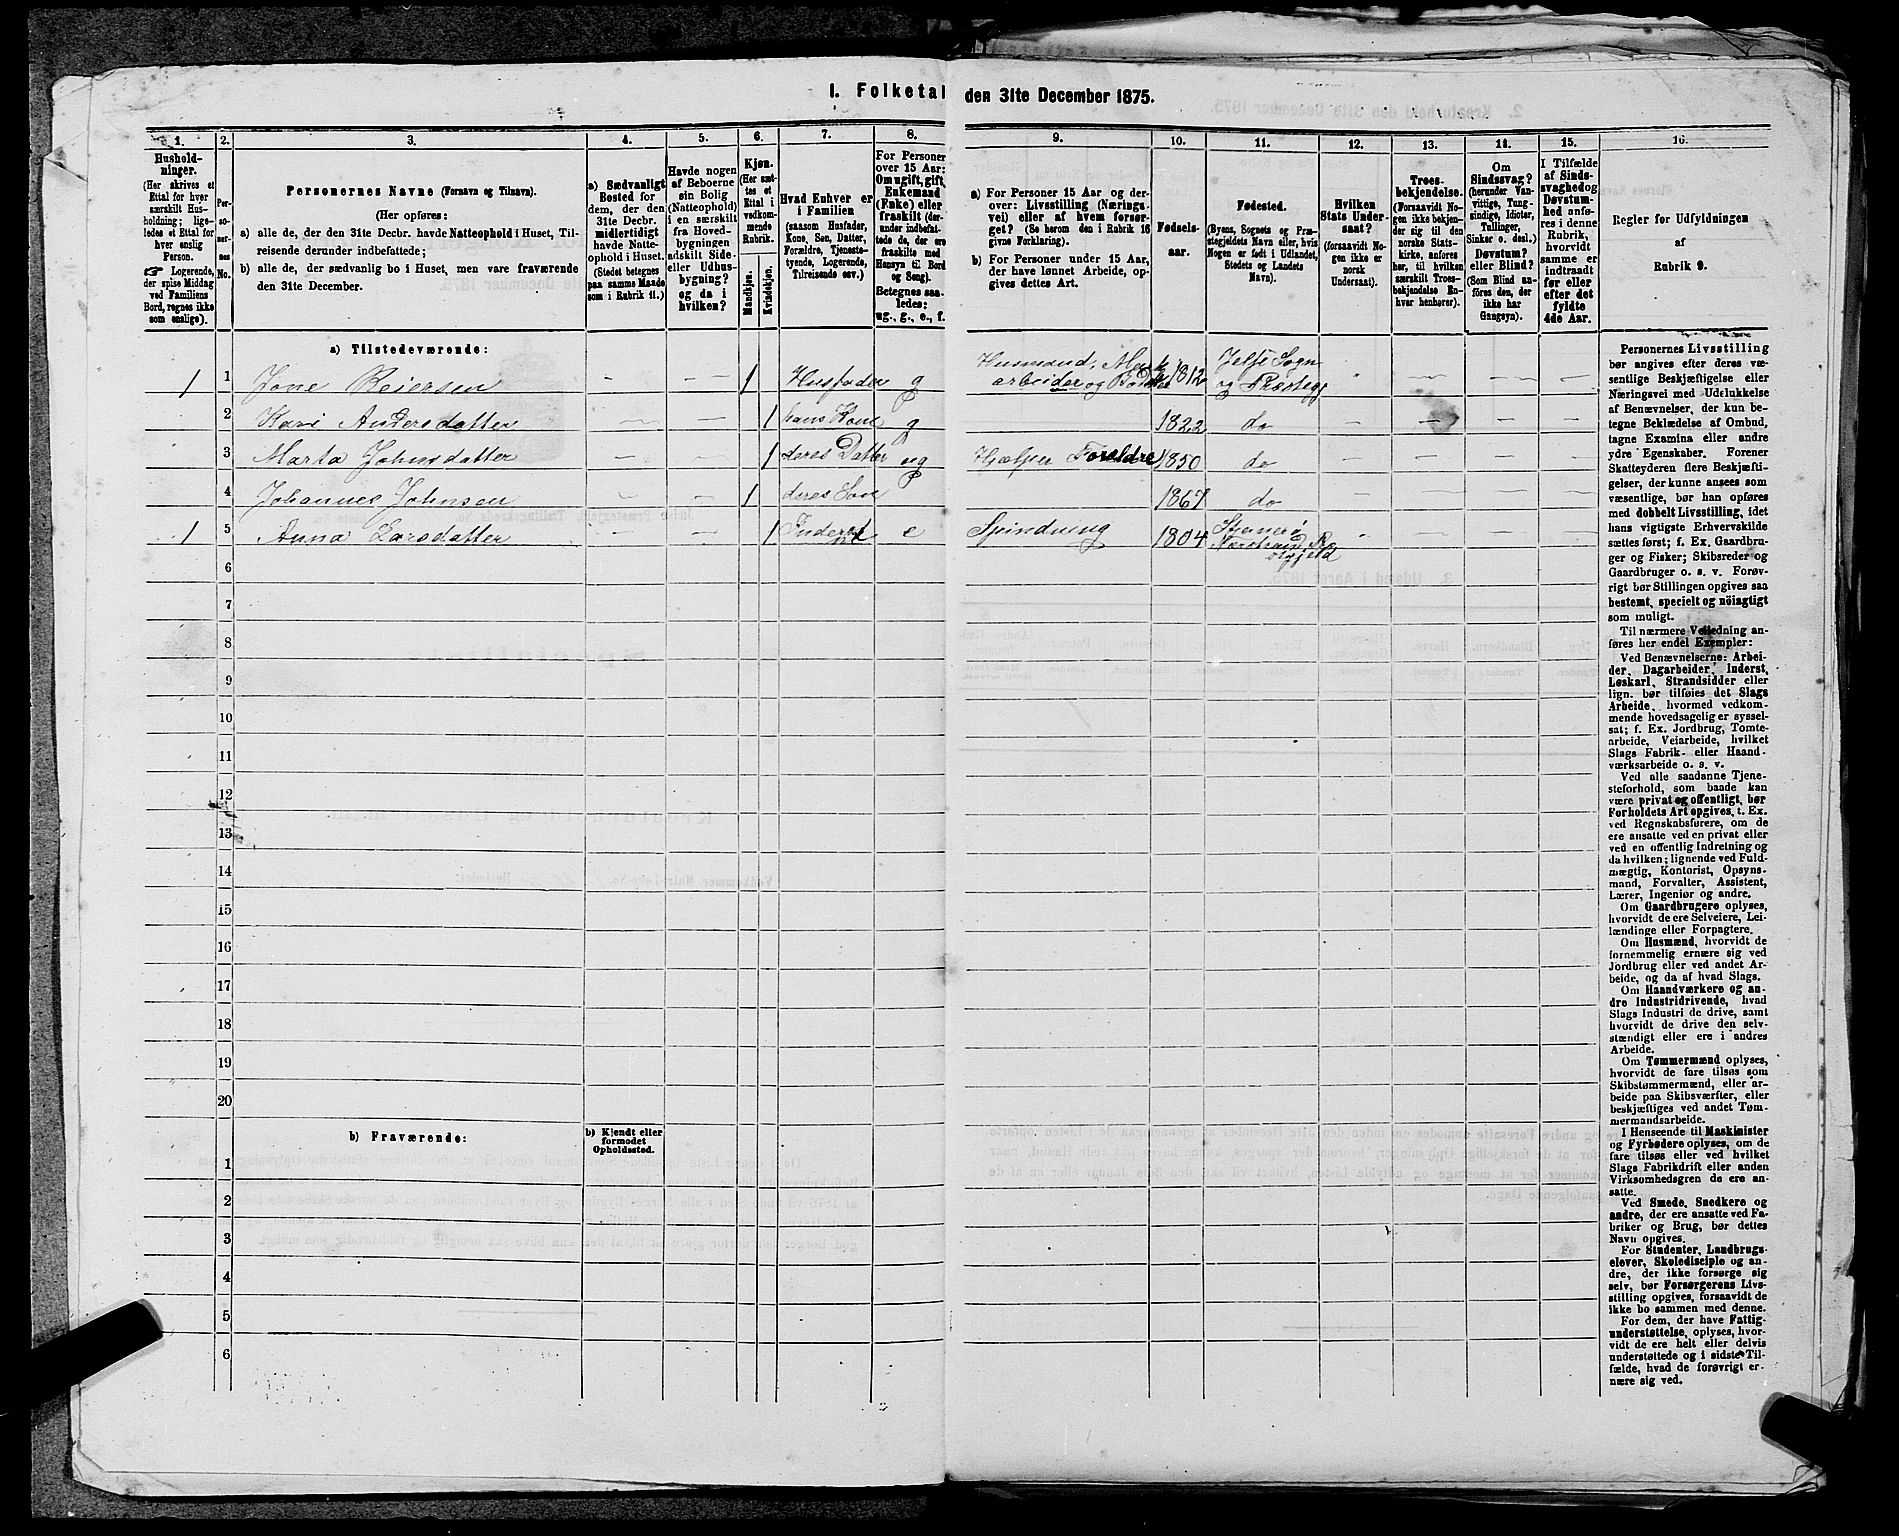 1. Folketal
den 31te December 1875.
1.
2.
3.
4.
5.
6.
7.
8.
9.
10.
11.
12.
13.
14.
15.
16.
Hushold-
ninger.
(Her skrives et
Ettal for hver
særskilt Hus-
holdning; lige-
ledes et Ettal for
hver enslig
Person.
Logerende,
der spise Middag
ved Familiens
Bord, regnes ikke
som enslige).
Per-
so-
ner-
nes
No.
Personernes Navne (Fornavn og Tilnavn).
(Her opføres:
a) alle de, der den 31te Decbr. havde Natteophold i Huset, Til-
reisende derunder indbefattede;
b) alle de, der sædvanlig bo i Huset, men vare fraværende
den 31te December.
a) Sædvanligt
Bosted for
dem, der den
31te Decbr.
midlertidigt
havde Natte-
ophold i Huset.
(Stedet betegnes
paa samme Maade
som i Rubrik 11.)
Havde nogen
af Beboerne
sin Bolig
(Natteophold)
i en særskilt
fra Hoved-
bygningen
adskilt Side-
eller Udhus-
bygning?
og da i
hvilken?
Kjøn.
(Her sæt-
tes et
Ettal i
vedkom-
mende
Rubrik.
Mandkjøn.
Kvindekjøn.
Hvad Enhver er
i Familien
(saasom Husfader,
Kone, Søn, Datter,
Forældre, Tjeneste-
tyende, Logerende,
Tilreisende osv.)
For Personer
over 15 Aar:
Om ugift, gift,
Enkemand
(Enke) eller
fraskilt (der-
under indbefat-
tede de, der ere
fraskilte med
Hensyn til Bord
og Seng).
Betegnes saa-
ledes:
ug., g., e., f.
a) For Personer 15 Aar og der-
over: Livsstilling (Nærings-
vei) eller af hvem forsør-
get? (Se herom den i Rubrik 16
givne Forklaring).
b) For Personer under 15 Aar,
der have lønnet Arbeide, op-
gives dettes Art.
Fødsels-
aar.
Fødested.
(Byens, Sognets og Præ-
stegjeldets Navn eller, hvis
Nogen er født i Udlandet,
Stedets og Landets
Navn).
Hvilken
Stats Under-
saat?
(forsaavidt No-
gen ikke er
norsk
Undersaat).
Troes-
bekjendelse.
(Forsaavidt No-
gen ikke bekjen-
der sig til den
norske Stats-
kirke, anføres
her, til hvilken
særskilt Troes-
bekjendelse En-
hver henhører).
Om
Sindssvag?
(herunder Van-
vittige, Tung-
sindige, Idioter,
Tullinger,
Sinker o. desl.)
Døvstum?
eller Blind?
(Som Blind an-
føres den, der
ikke har
Gangsyn).
I Tilfælde
af Sinds-
svaghed og
Døvstum-
hed anfø-
res i denne
Rubrik,
hvorvidt
samme er
indtraadt
før eller
efter det
fyldte
4de Aar.
Regler for Udfyldningen
af
Rubrik 9.
a) Tilstedeværende:
1 1 Jone Reiersen — — 1 Husfader g Husmand, arbeider og 1812 Jelse Sogn og Præstegj — — — —
2 Kari Andersdatter — — 1 hans Kone g 1822 do — — — —
3 Marta Johnsdatter — — 1 deres Datter ug Hjælper Forældre 1850 do — — — —
4 Johannes Johnsen — — 1 deres Søn 1867 do — — — —
1 5 Anna Larsdatter — — 1 Inderst e Spindning 1804 — — — —
6
7
8
9
10
11
12
13
14
15
16
17
18
19
20
b) Fraværende:
b) Kjendt eller
formodet
Opholdssted.
1
2
3
4
5
6
Personernes Livsstilling
bør angives efter deres væ-
sentlige Beskjæftigelse eller
Næringsvei med Udelukkelse
af Benævnelser, der kun be-
tegne Beklædelse af Ombud,
tagne Examina eller andre
ydre Egenskaber. Forener
Skatteyderen flere Beskjæfti-
gelser, der kunne ansees som
væsentlige, bør han opføres
med dobbelt Livsstilling, idet
hans vigtigste Erhvervskilde
sættes først; f. Ex. Gaardbru-
ger og Fisker; Skibsreder og
Gaardbruger o. s. v. Forøv-
rigt bør Stillingen opgives saa
bestemt, specielt og nøiagtigt
som muligt.
Til nærmere Veiledning an-
føres her endel Exempler:
Ved Benævnelserne: Arbei-
der, Dagarbeider, Inderst,
Løskarl, Strandsidder eller
lign. bør tilføies det Slags
Arbeide, hvormed vedkom-
mende hovedsagelig er syssel-
sat; f. Ex. Jordbrug, Tomte-
arbeide, Veiarbeide, hvilket
Slags Fabrik- eller Haand-
værksarbeide o. s. v.
Ved alle saadanne Tjene-
steforhold, som baade kan
være privat og offentligt, bør
Forholdets Art opgives, t. Ex.
ved Regnskabsførere, om de
ere ansatte ved en privat eller
ved en offentlig Indretning og
da hvilken; lignende ved Fuld-
mægtig, Kontorist, Opsyns-
mand, Forvalter, Assistent,
Lærer, Ingeniør og andre.
Om Gaardbrugere oplyses,
hvorvidt de ere Selveiere, Lei-
lændinge eller Forpagtere.
Om Husmænd, hvorvidt de
fornemmelig ernære sig ved
Jordbrug eller ved andet Ar-
beide, og da af hvad Slags.
Om Haandværkere og an-
dre Industridrivende, hvad
Slags Industri de drive, samt
hvorvidt de drive den selv-
stændigt eller ere i andres
Arbeide.
Om Tømmermænd oplyses,
hvorvidt de fare tilsøs som
Skibstømmermænd, eller ar-
beide paa Skibsværfter, eller
beskjæftiges ved andet Tøm-
mermandsarbeide.
I Henseende til Maskinister
og Fyrbødere oplyses, om de
fare tilsøs eller ved hvilket
Slags Fabrikdrift eller anden
Virksomhedsgren de ere an-
satte.
Ved Smede, Snedkere og
andre, der ere ansatte ved Fa-
briker og Brug, bør dettes
Navn opgives.
For Studenter, Landbrugs-
elever, Skoledisciple og an-
dre, der ikke forsørge sig
selv, bør Forsørgerens Livs-
stilling opgives, forsaavidt de
ikke bo sammen med denne.
For dem, der have Fattig-
understøttelse, oplyses, hvor-
vidt de ere helt eller delvis
understøttede og i sidste Til-
fælde, hvad de forøvrigt er-
nære sig ved.